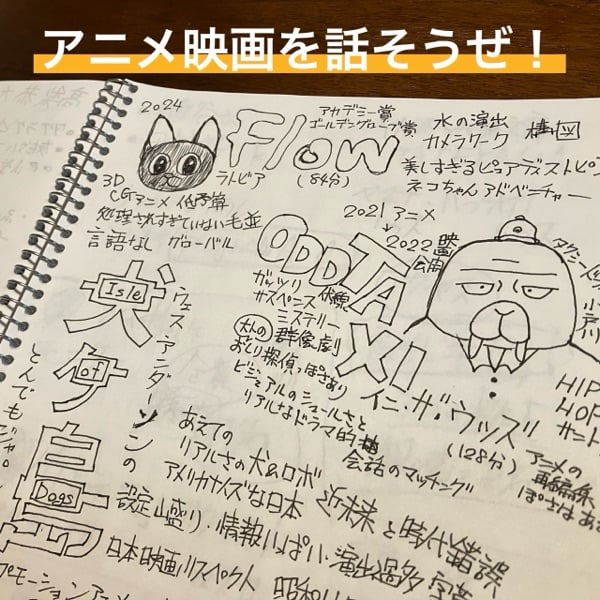 アニメ映画を話そうぜ！
2024
Flow
アカデミー賞
ゴールデングローブ賞
水の演出
カメラワーク
構図
ラトビア
(84分)
美しすぎるピュアディストピア
ネコちゃんアドベンチャー
3D
CGアニメ 低予算
処理されすぎていない毛並
言語なし グローバル
2021 アニメ
2022 映画
公開
ODDTAXI
イン・ザ・ウッズ
(128分)
タクシー
小戸川
ガッツリ
サスペンス
ミステリー
大人の群像劇
おしり探偵っぽさあり
ビジュアルのシュールさと
リアルなドラマ的
会話のマッチング
HIP
HOP
アニメの
再編集
犬ヶ島
Isle
of
Dogs
ウェス・アンダーソンの
とんでもジャパ
あえての
リアルさの犬&ロボ
アメリカナイズな日本
近未来と時代錯誤
設定山盛り・情報いっぱい・演出過多
日本映画リスペクト
昭和